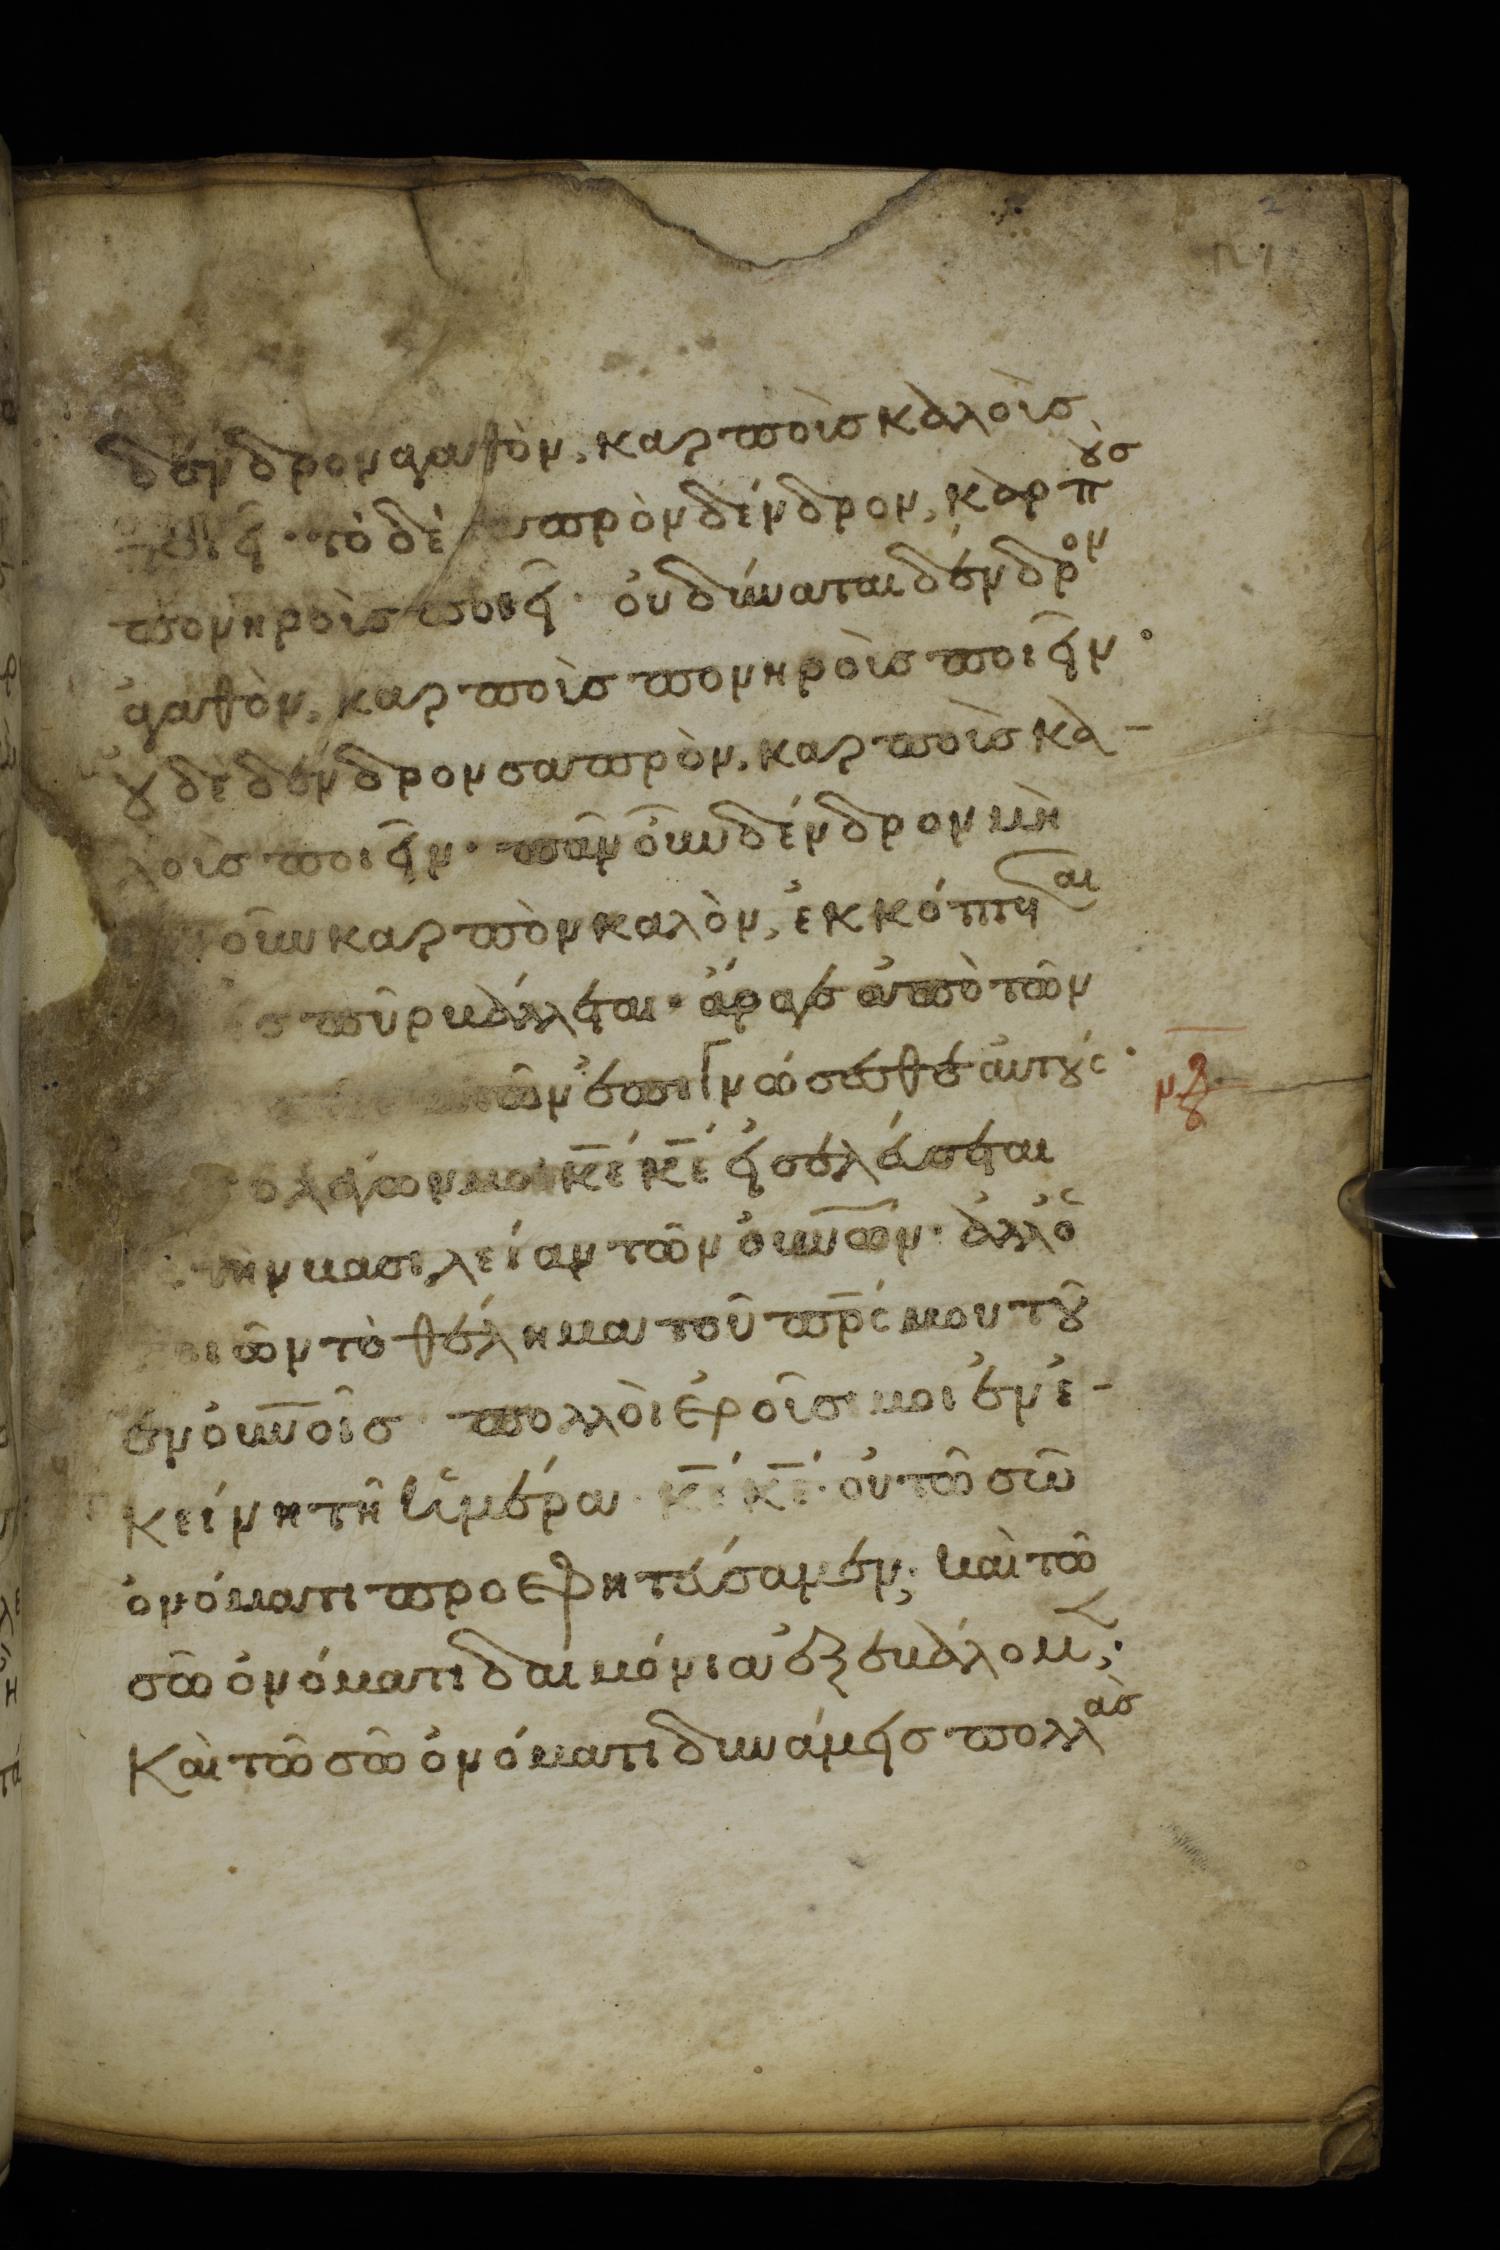 δένδρον αγαθὸν, καρποὺσ καλοὺσ
ποιεῖ· τὸ δὲ σαπρὸν δένδρον, καρποὺσ
πονηροὺσ ποιεῖ· οὐ δύναται δένδρον
ἀγαθὸν, καρποὺσ πονηροὺσ ποιεῖν·
οὐδὲ δένδρον σαπρὸν, καρποὺσ κα-
λοὺσ ποιεῖν· πᾶν οὖν δένδρον μὴ
ποιοῦν καρπὸν καλὸν, ἐκκόπτεται
εἰσ πῦρ βάλλεται· ἄραγε ἀπὸ τῶν
καρπῶν ἐπιγνώσεσθε αὐτούς·
ὁ λέγων μοι κ̅ε̅ κ̅ε̅ εἰσελεύσεται
τὴν βασιλείαν τῶν οὐν̅ων· ἀλλ ὁ
ποιῶν τὸ θέλημα τοῦ πρ̅ς μου τοῦ
ἐν οὐν̅οις πολλοὶ ἐροῦσι μοι ἐν ἐ-
κείνη τῆ ἡμέρα· κ̅ε̅ κ̅ε̅· οὐ τῶ σῶ
ὀνόματι προεφητεύσαμεν; καὶ τῶ
σῶ ὀνόματι δαιμόνια ἐξεβάλομεν;
Καὶ τῶ σῶ ὀνόματι δυνάμεισ πολλὰσ